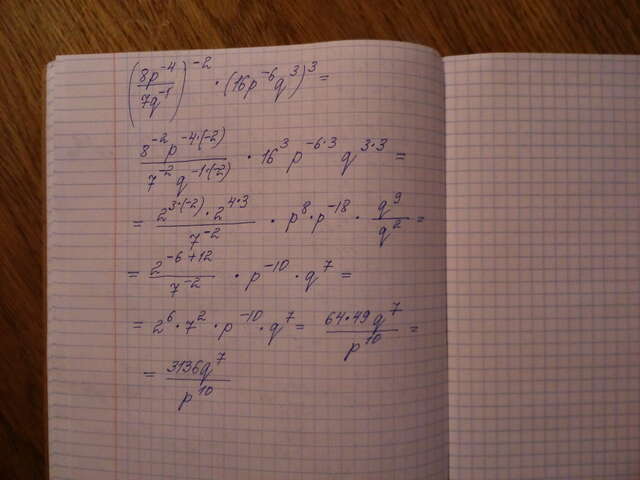 (8p⁻⁴/7q⁻¹)⁻² · (16p⁻⁶q³)³ =
8⁻²p⁻⁴·⁽⁻²⁾/7⁻²q⁻¹·⁽⁻²⁾ · 16³p⁻⁶·³q³·³ =
= 2³·⁽⁻²⁾·2⁴·³/7⁻² · p⁸·p⁻¹⁸ · q⁹/q² =
= 2⁻⁶⁺¹²/7⁻² · p⁻¹⁰ · q⁷ =
= 2⁶·7²·p⁻¹⁰·q⁷ = 64·49q⁷/p¹⁰ =
= 3136q⁷/p¹⁰